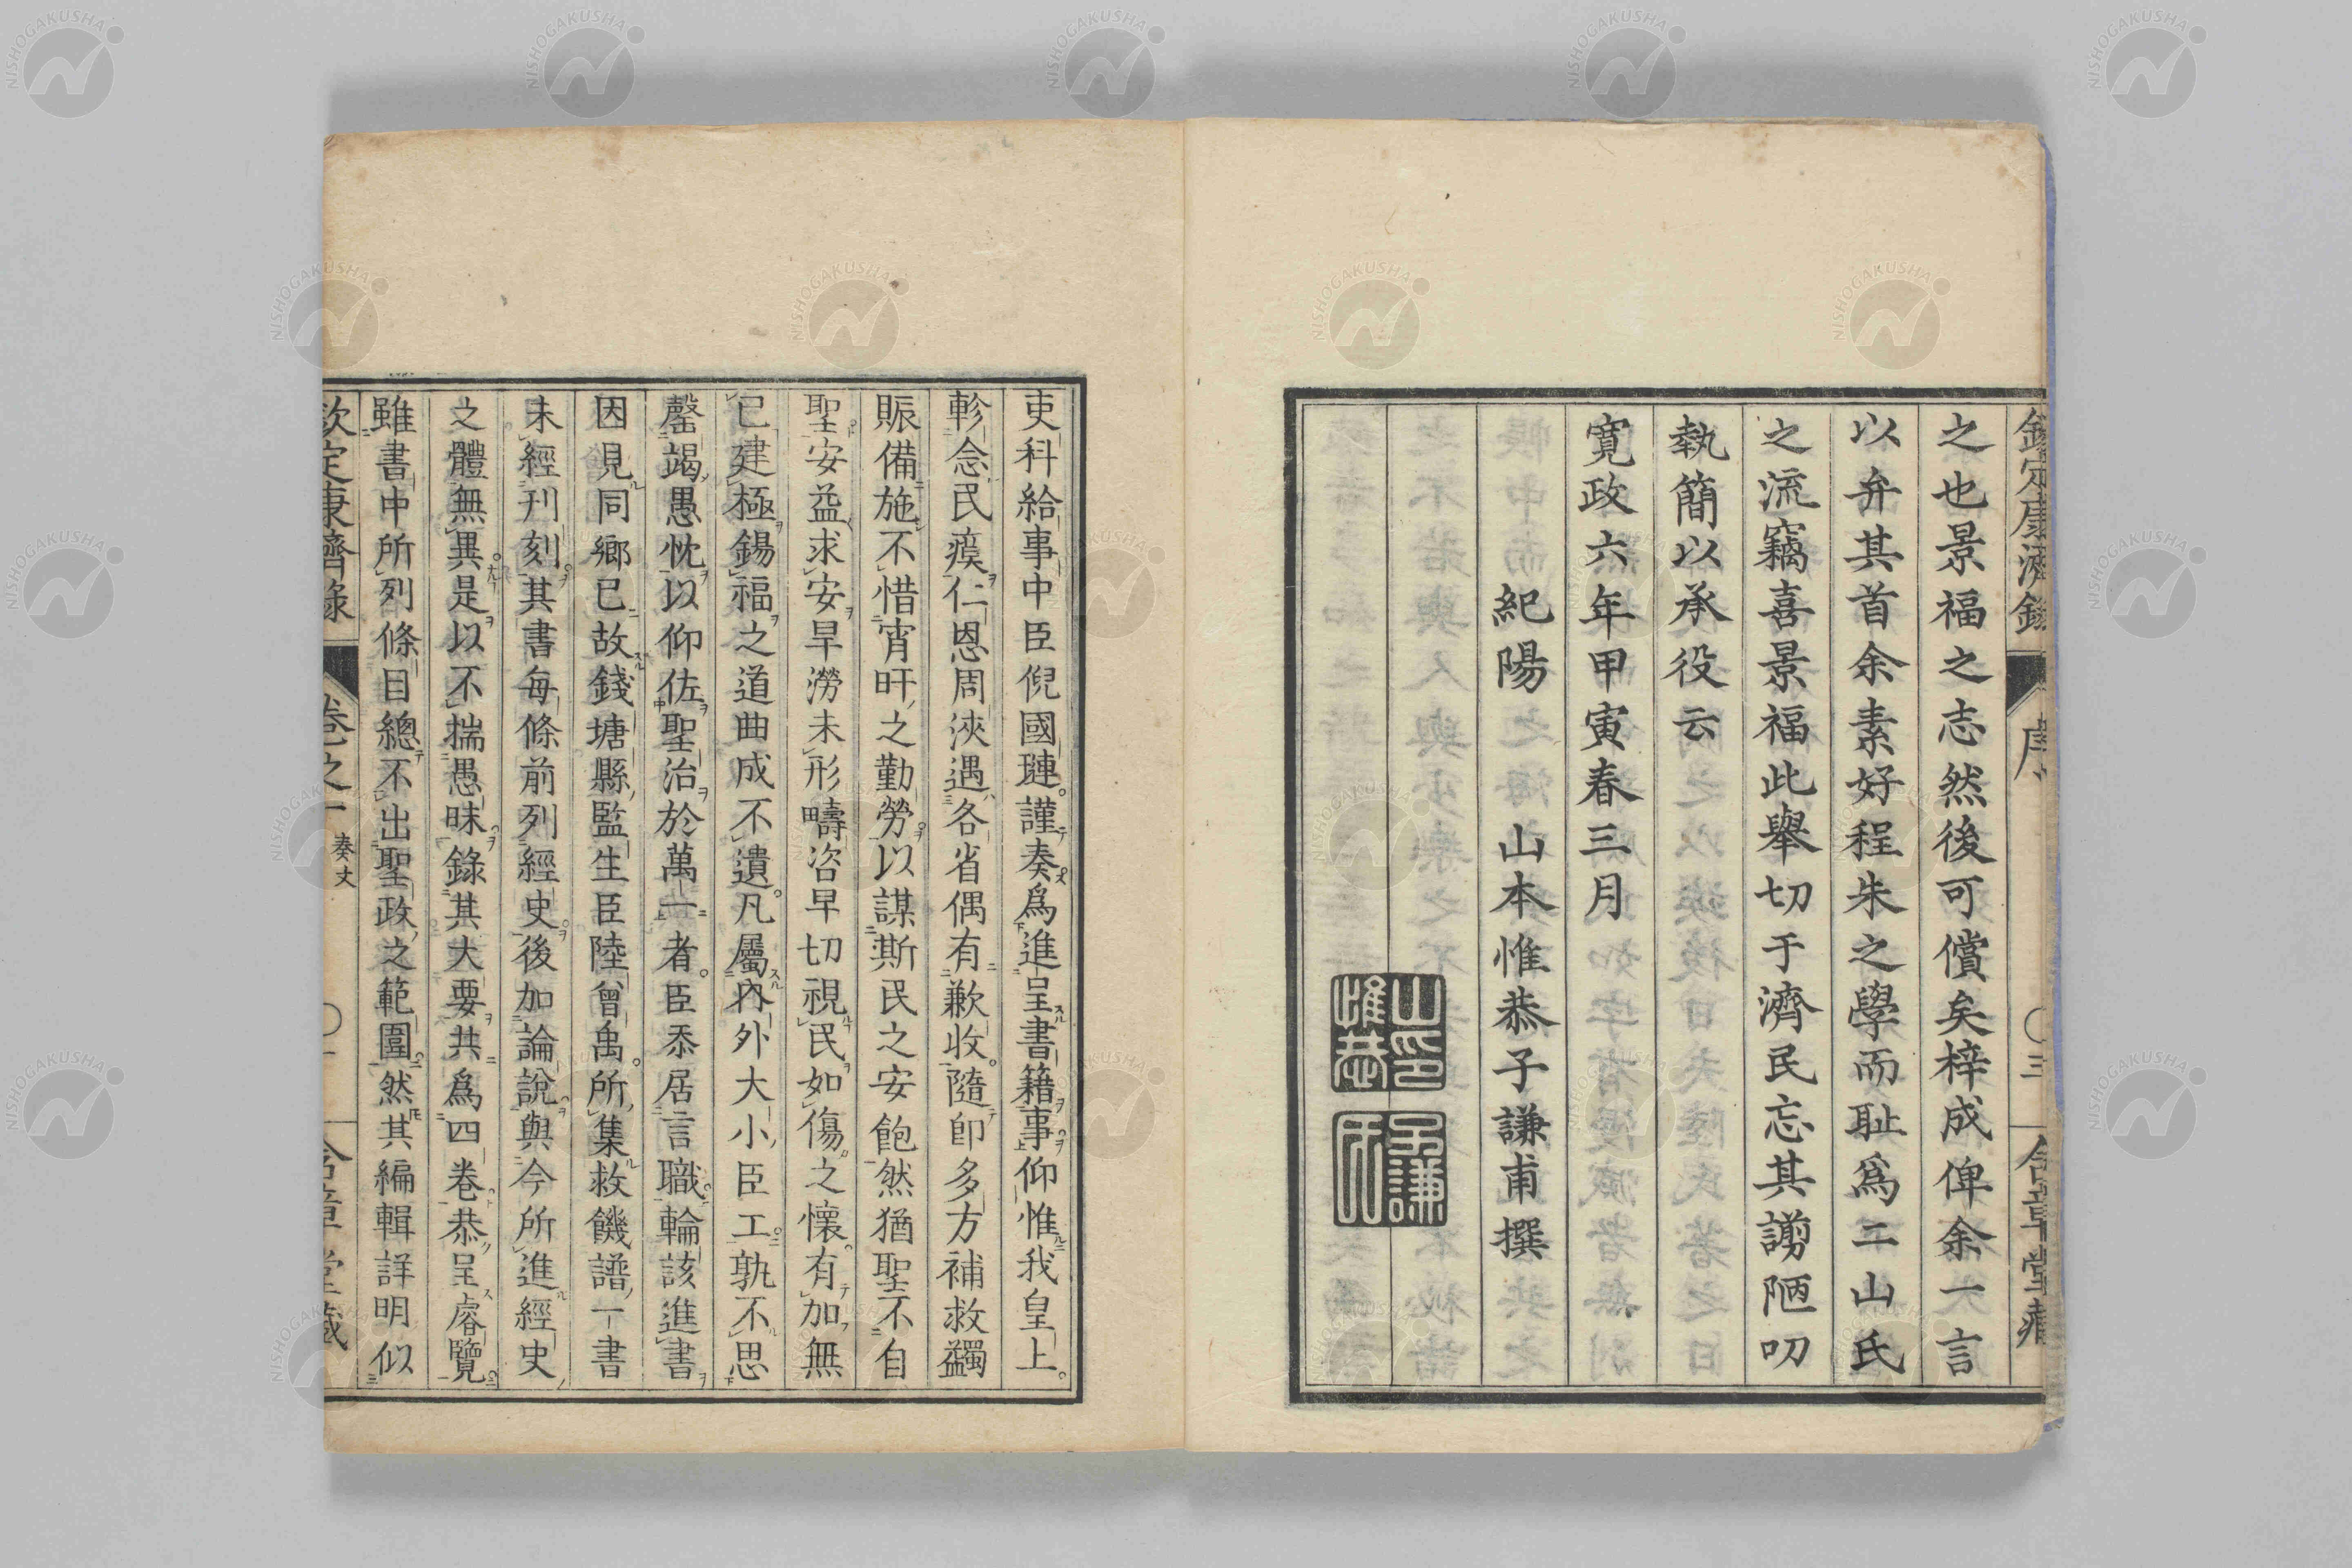 欽定康濟錄 序 〇三 含章堂藏
之也景福之志然後可償矣梓成俾余一言
以弁其首余素好程朱之學而耻爲二山氏
之流竊喜景福此擧切于濟民忘其謭陋叨
執簡以承役云
寛政六年甲寅春三月
紀陽 山本惟恭子謙甫撰
山本惟恭
子謙氏
吏科給事中臣倪國璉。謹奏爲進呈書籍事仰惟我皇上。
軫念民瘼仁恩周浹遇各省偶有歉收。隨卽多方補救蠲
賑備施不惜宵旰之勤勞。以謀斯民之安飽然猶聖不自
聖安益求安旱澇未形疇咨早切視民如傷。之懷。有加無
已建極錫福之道曲成不遺。凡屬內外大小臣工孰不思
罄竭愚忱以仰佐聖治於萬一者。臣忝居言職輪該進書
因見同鄉已故錢塘縣監生臣陸曾禹。所集救饑譜一書
未經刊刻其書每條前列經史。後加論說與今所進經史
之體無異。是以不揣愚昧錄其大要共爲四卷恭呈睿覽。
雖書中所列條目總不出聖政之範圍。然其編輯詳明似
欽定康濟錄 卷之一 奏文 〇一 含章堂藏
NISHOGAKUSHA